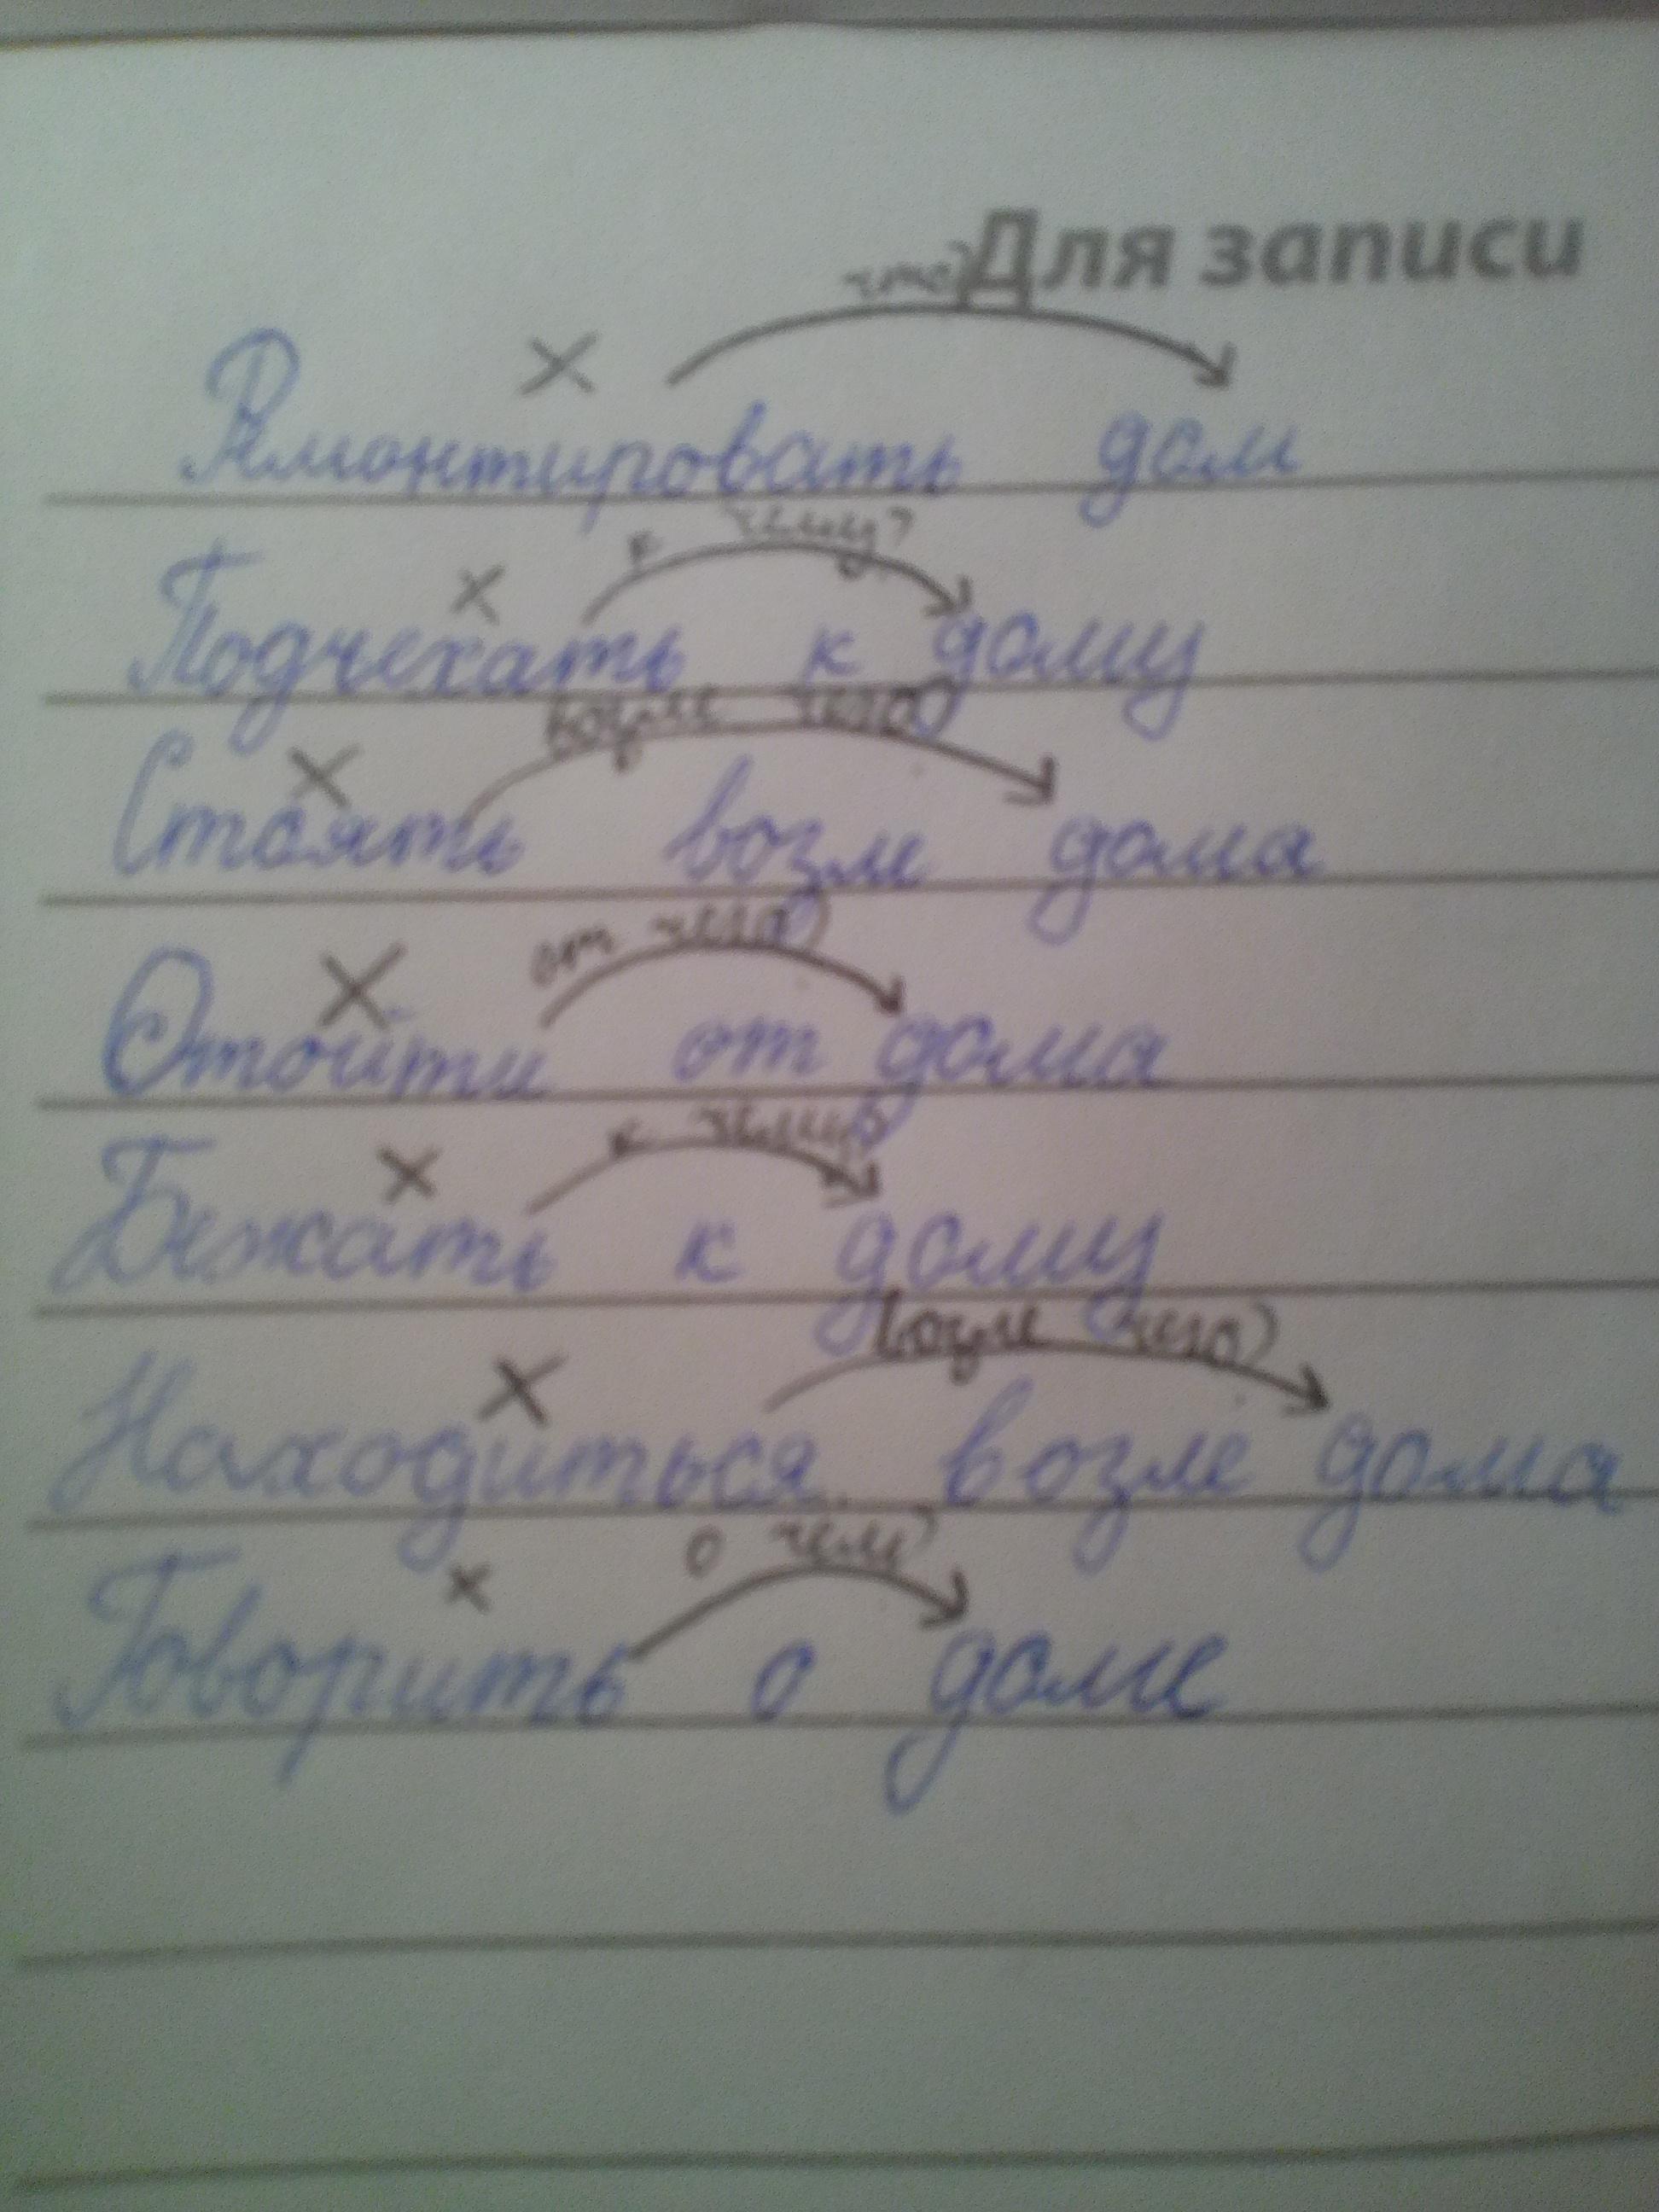 Для записи
что?
Ремонтировать дом
к чему?
Подъехать к дому
возле чего?
Стоять возле дома
от чего?
Отойти от дома
к чему?
Бежать к дому
возле чего?
Находиться возле дома
о чем?
Говорить о доме